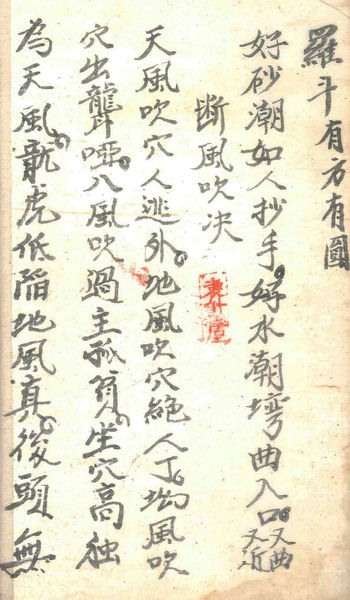 羅斗有方有圓
好砂潮如人抄手好水潮塆曲入口又曲又近
断風吹决
天風吹穴人逃外地風吹穴絶人丁坳風吹
穴出聾啞八風吹過主孤貧坐穴高独
為天風龍虎低陷地風真後頭無